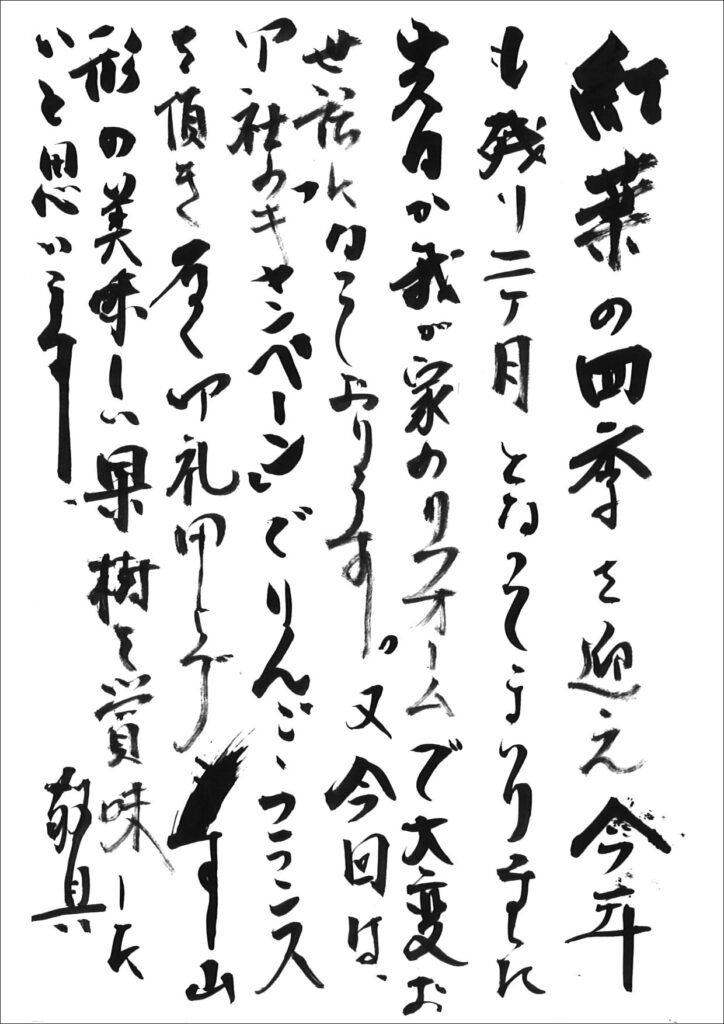 紅葉の四季を迎え今年
も残り二ヶ月となってまいりました
先日か我が家のリフォームで大変お
世話になっております。又今回は、
御社のキャンペーンでりんご、ラフランス
を頂き厚く御礼申し上げます山
形の美味しい果樹を賞味した
いと思います
敬具